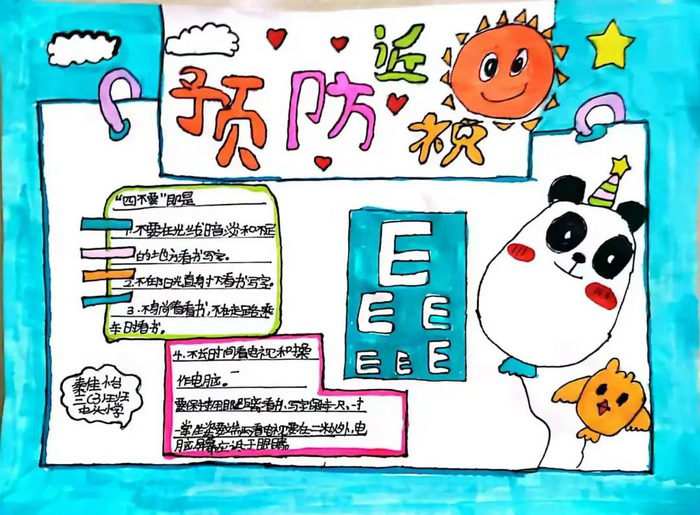 预防近视
"四不要"即是
1.不要在光线暗淡和不足
的地方看书写字。
2.不在阳光直射下看书写字。
3.不躺着看书,不在走路乘
车时看书。
4.不长时间看电视和操
作电脑。
E
E E
E E E
要保持用眼距离看书,写字保持一尺,一
坐姿要端 看电视要在二米以外,电
脑屏幕应低于眼睛
三(3)班
中心小学